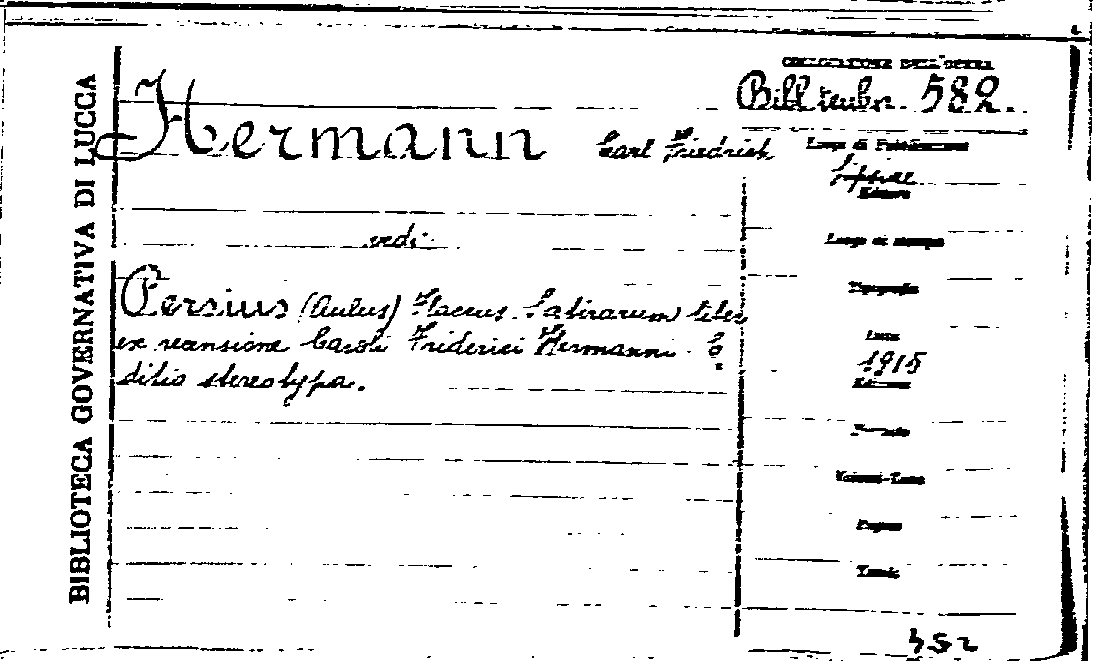 BIBLIOTECA GOVERNATIVA DI LUCCA
COLLOCAZIONE DELL'OPERA
Bibl. teubn. 582.
Hermann Carl Friedrich
Luogo di Pubblicazione
Lipsiae
Editore
vedi:
Luogo di stampa
Persius (Aulus) Flaccus. Satirarum liber
ex recensione Caroli Friderici Hermanni. E
ditio stereotypa.
Tipografia
1915
Edizione
Formato
Pagine
452